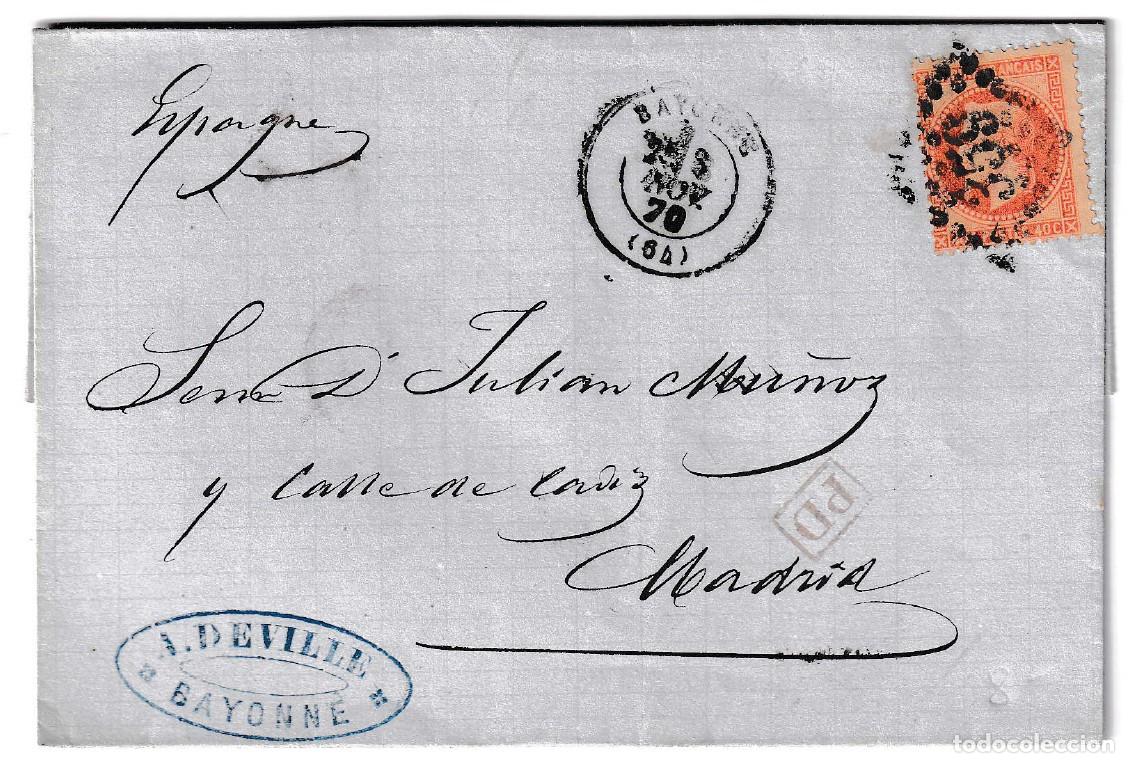 Espagne
BAYONNE
NOV
70
(64)
FRANÇAIS
358
40 C
Senr D. Julian Muñoz
y Calle de Cadiz
Madrid
PD
A. DEVILLE
BAYONNE
todocoleccion